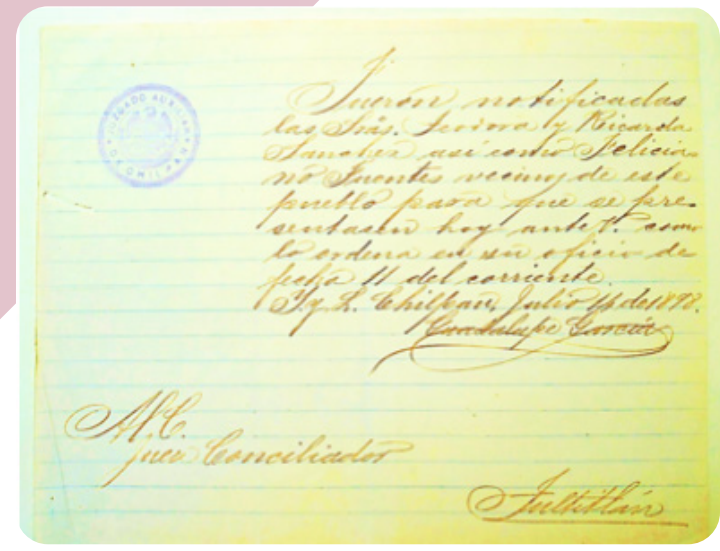 JUZGADO AUXILIAR
CHILPAN
Fueron notificadas
las Srás. Teodora y Ricarda
Sanchez asi como Felicia-
no Fuentes vecinos de este
pueblo para que se pre-
sentasen hoy ante V. como
lo ordena en su oficio de
fecha 11 del corriente.
L. Chilpan, Julio de 1898.
Guadalupe Garcia
Al C.
juez Conciliador
Tultitlán